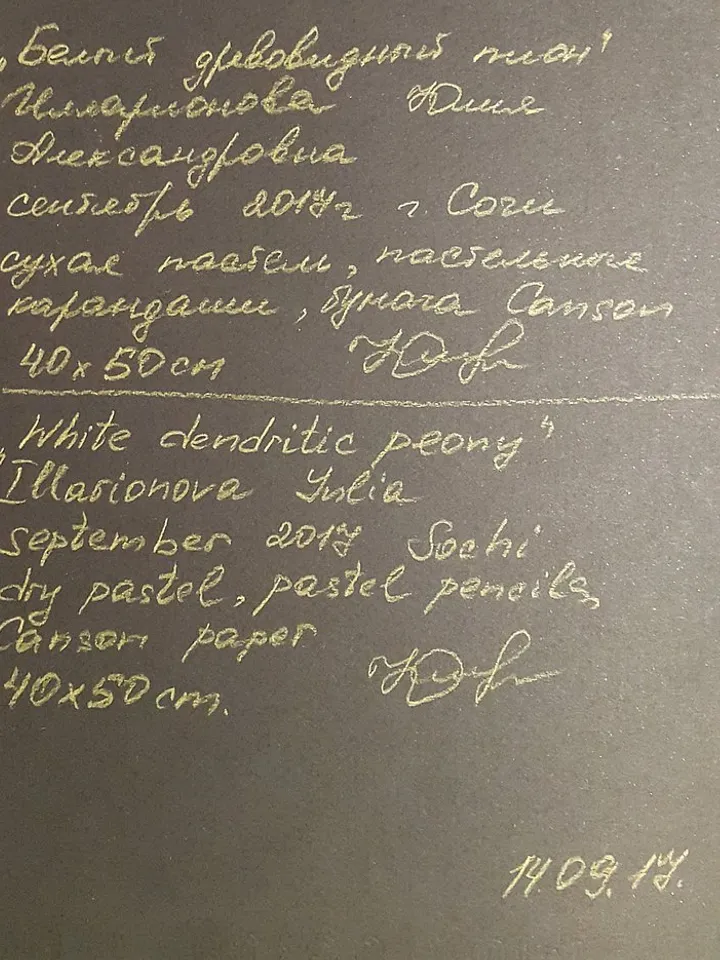 „Белый древовидный пион"
Илларионова Юлия
Александровна
сентябрь 2017г г. Сочи
сухая пастель, пастельные
карандаши, бумага Canson
40х50см
„White dendritic peony"
Illarionova Yulia
september 2017 Sochi
dry pastel, pastel pencils,
Canson paper
40x50cm.
14.09.17.